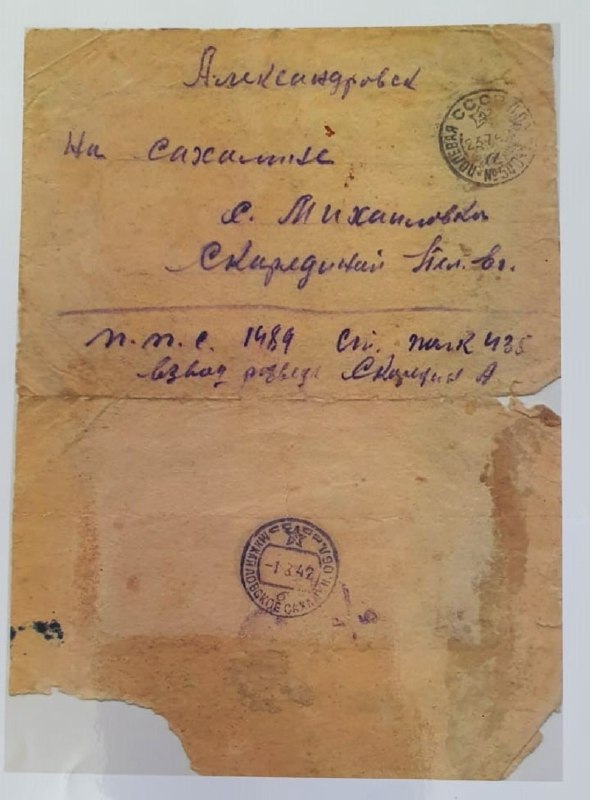 Александровск
На сахалине
с. Михаиловка
Скарединой Пел. вг.
п. п. с. 1489 Ст. полк 435
взвод развед Скаредин А
ПОЛЕВАЯ СССР
МИХАЙЛОВСКОЕ САХАЛИН. ОБЛ.
-1.3.42
б